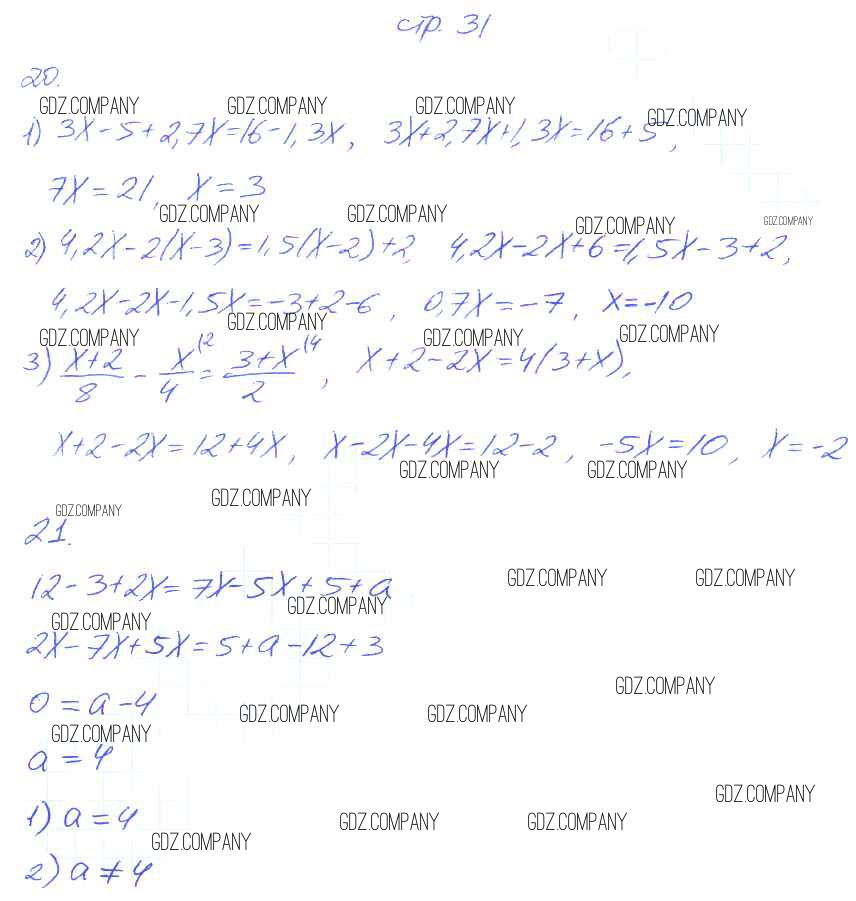 стр. 31
20.
GDZ.COMPANY GDZ.COMPANY GDZ.COMPANY GDZ.COMPANY
1) 3x-5+2,7x=16-1,3x, 3x+2,7x+1,3x=16+5,
7x=21, x=3
GDZ.COMPANY GDZ.COMPANY GDZ.COMPANY GDZ.COMPANY
2) 4,2x-2(x-3)=1,5(x-2)+2, 4,2x-2x+6=1,5x-3+2,
4,2x-2x-1,5x=-3+2-6, 0,7x=-7, x=-10
GDZ.COMPANY GDZ.COMPANY GDZ.COMPANY GDZ.COMPANY
3) (x+2)/8 - x/4 (2 = (3+x)/2 (4, x+2-2x=4(3+x),
x+2-2x=12+4x, x-2x-4x=12-2, -5x=10, x=-2
GDZ.COMPANY GDZ.COMPANY
GDZ.COMPANY GDZ.COMPANY
21.
12-3+2x=7x-5x+5+a
GDZ.COMPANY GDZ.COMPANY
GDZ.COMPANY GDZ.COMPANY
2x-7x+5x=5+a-12+3
GDZ.COMPANY
0=a-4
GDZ.COMPANY GDZ.COMPANY GDZ.COMPANY
a=4
GDZ.COMPANY
1) a=4
GDZ.COMPANY GDZ.COMPANY GDZ.COMPANY
2) a≠4